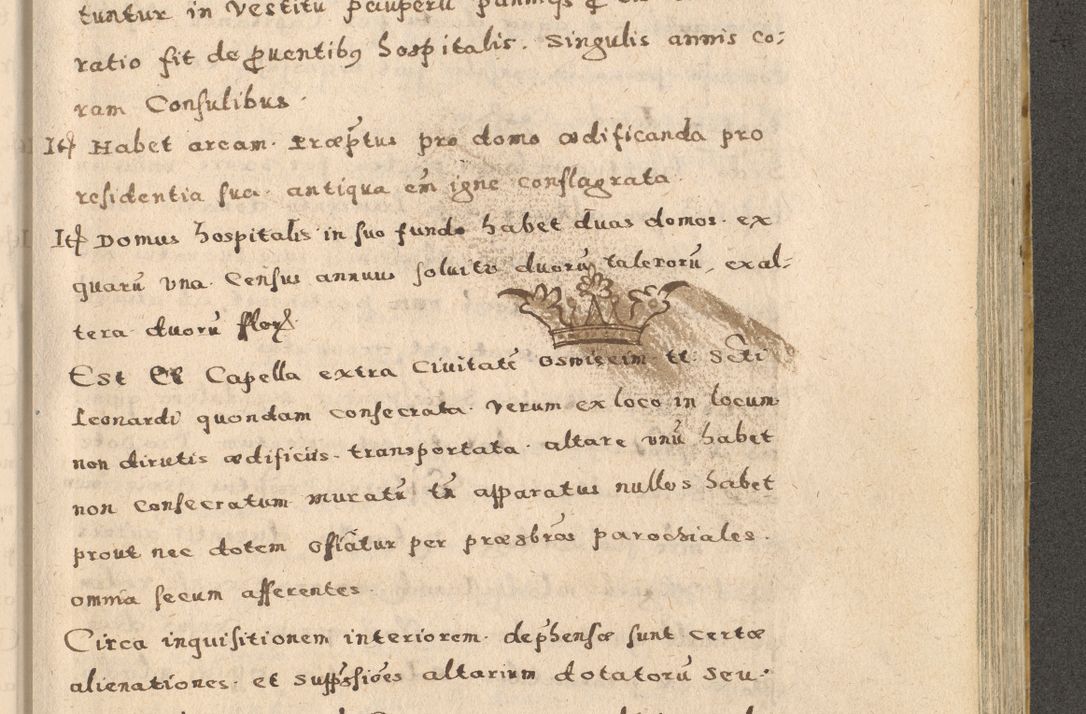 tuntur in Vestitu pauperũ
ratio fit de ꝓuentibꝯ hospitalis. Singulis annis co:
ram Consulibus.
Itꝫ Habet arcam. Præp̃tus pro domo ædificanda pro
residentia sua. antiqua em̃ igne conflagrata.
Itꝫ Domus hospitalis in suo fundo habet duas domos. ex
quarũ vna. Census annuus soluitr duorũ talerorũ, ex al:
tera duorũ flor̃.
Est et Capella extra Ciuitatẽ Osnicein tt. Sc̃ti
Leonardi quondam consecrata. Verum ex loco in locum
non dirutis ædificiis. transportata. altare vnũ habet
non consecratum muratũ tñ apparatus nullos habet
prout nec dotem offiãtur per præsbr̃os parochiales.
omnia secum afferentes.
Circa inquisitionem interiorem. dep̃hensæ sunt certæ
alienationes. et supp̃ssiões altarium dotatorũ seu.